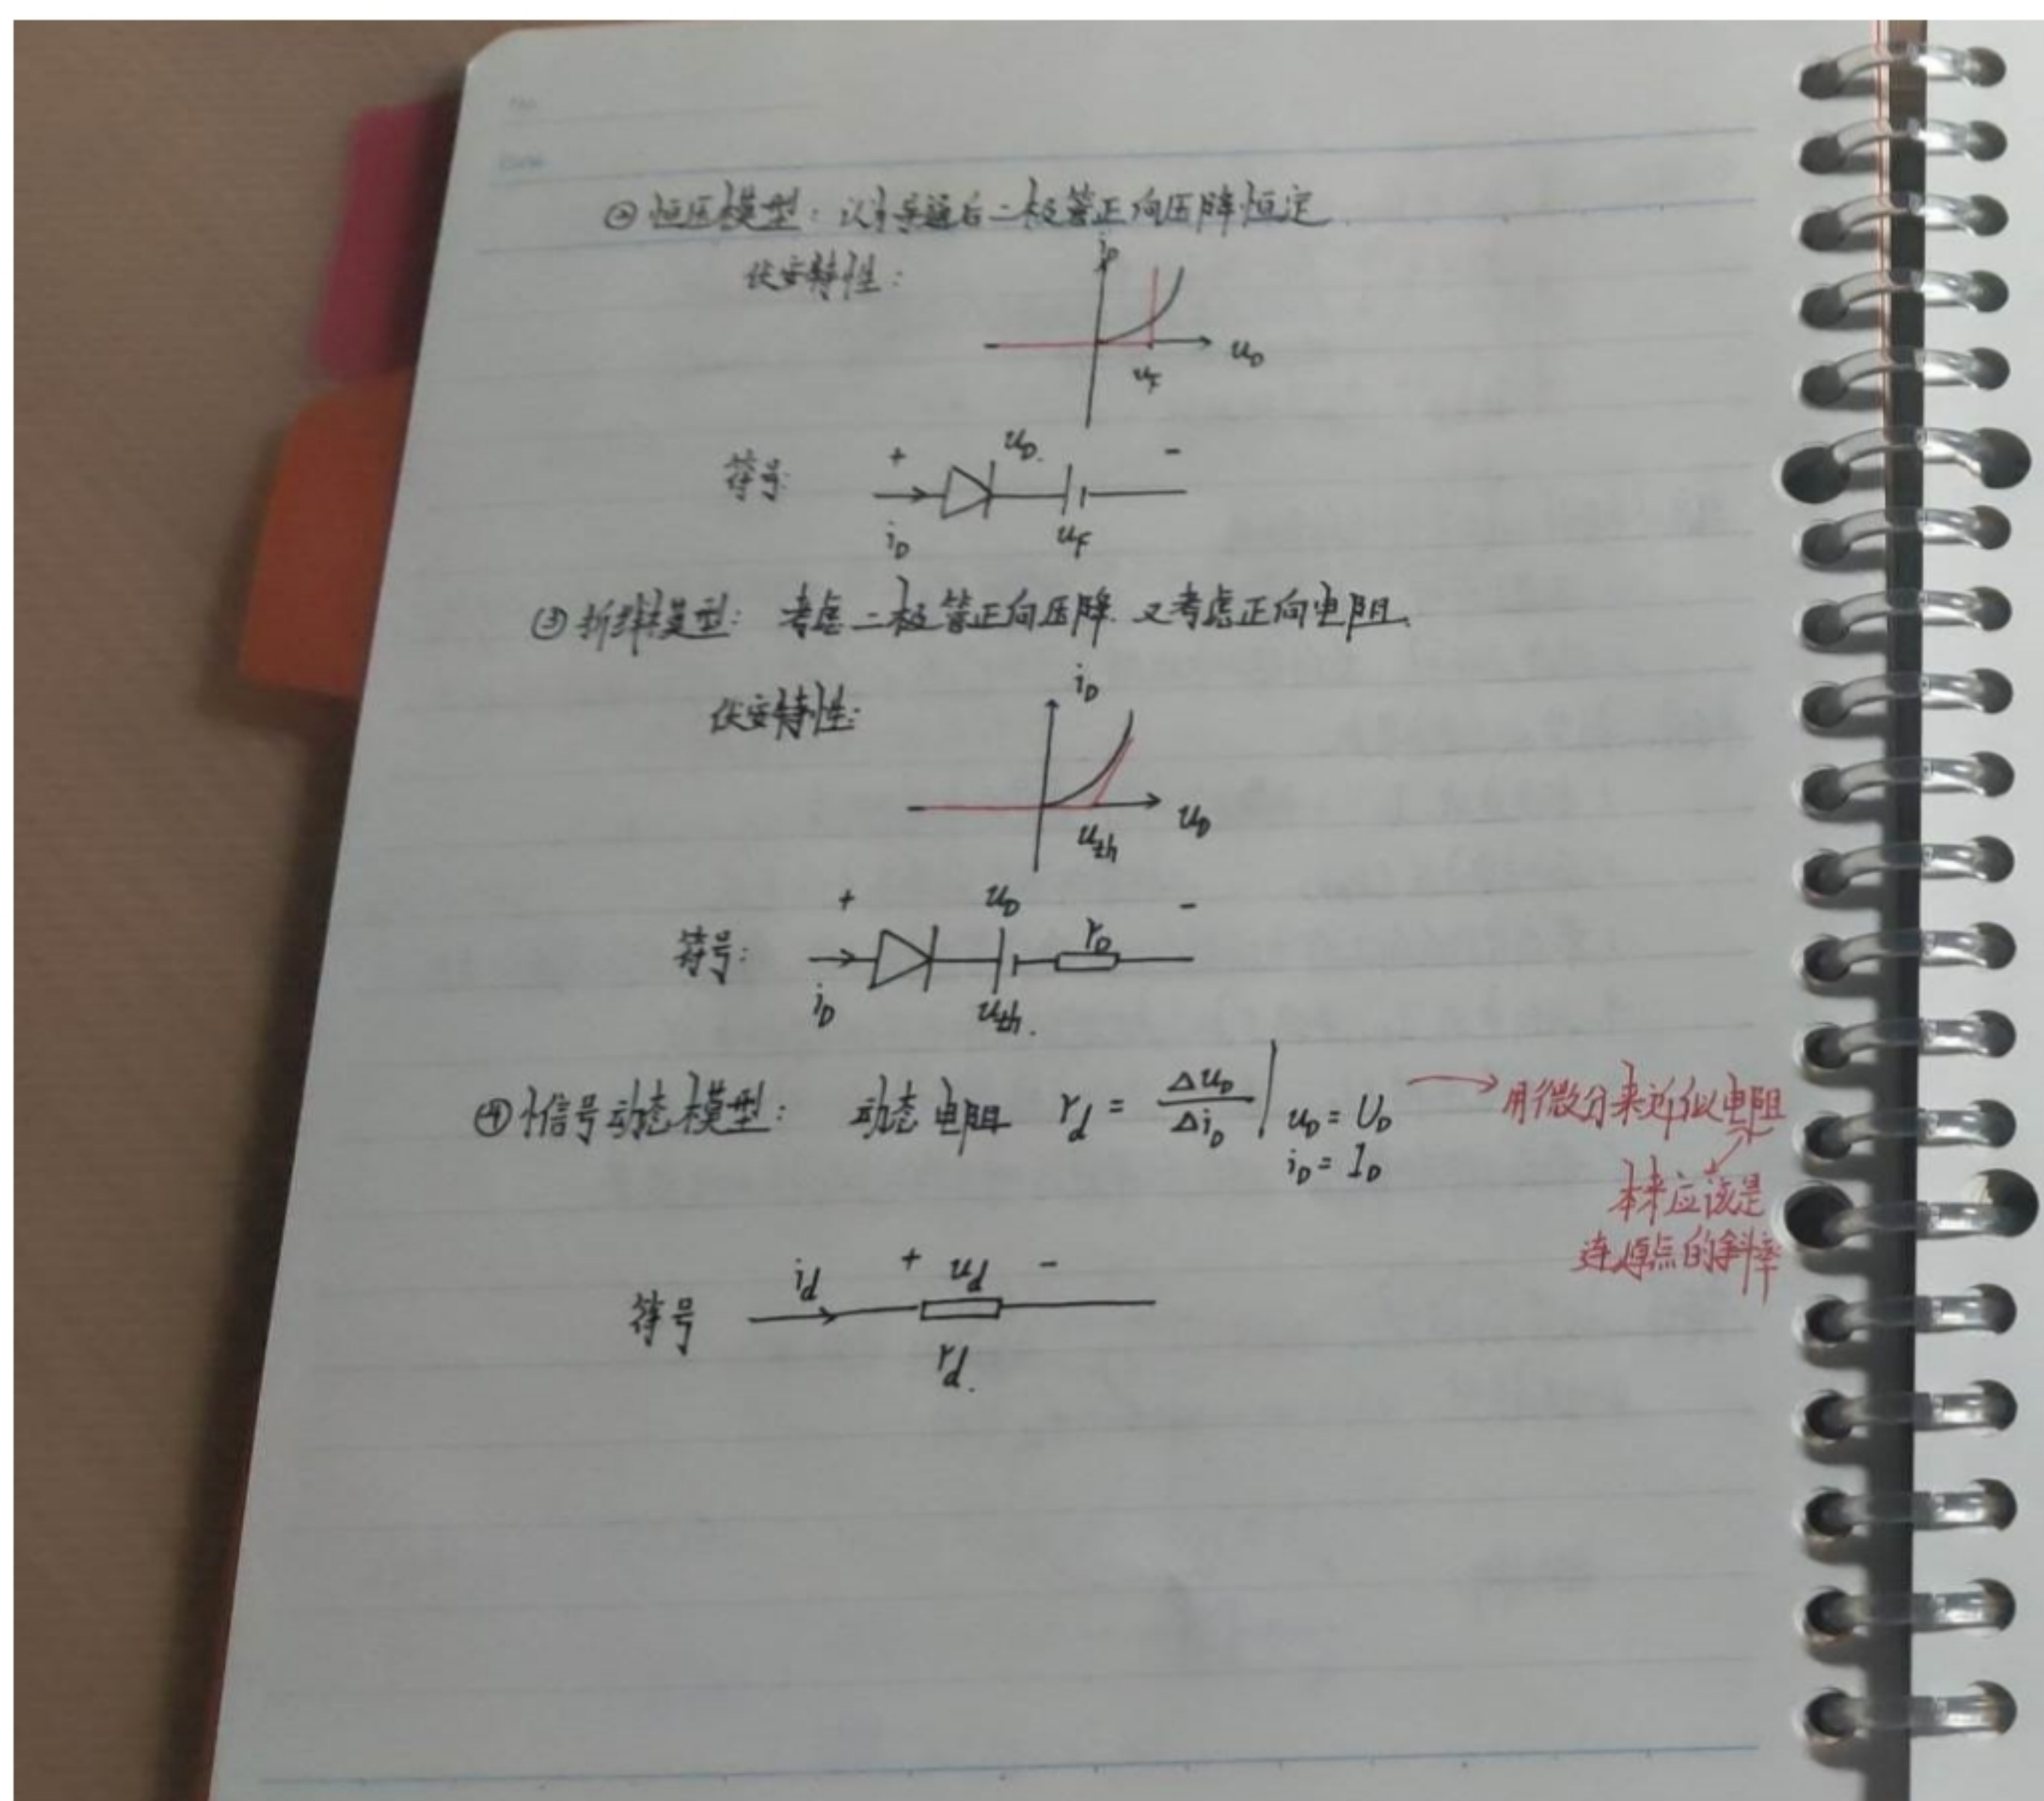 ② 恒压模型：认为导通后二极管正向压降恒定
伏安特性：
i_D
u_D
u_F
符号:
+ u_D. -
i_D u_F
③ 折线模型：考虑二极管正向压降.又考虑正向电阻.
伏安特性:
i_D
u_D
u_th
符号:
+ u_D -
r_D
i_D u_th.
④ 小信号动态模型： 动态电阻 r_d = Δu_D/Δi_D | u_D = U_D
i_D = I_D
→ 用微分来近似电阻
本来应该是
连原点的斜率
符号
i_d + u_d -
r_d.